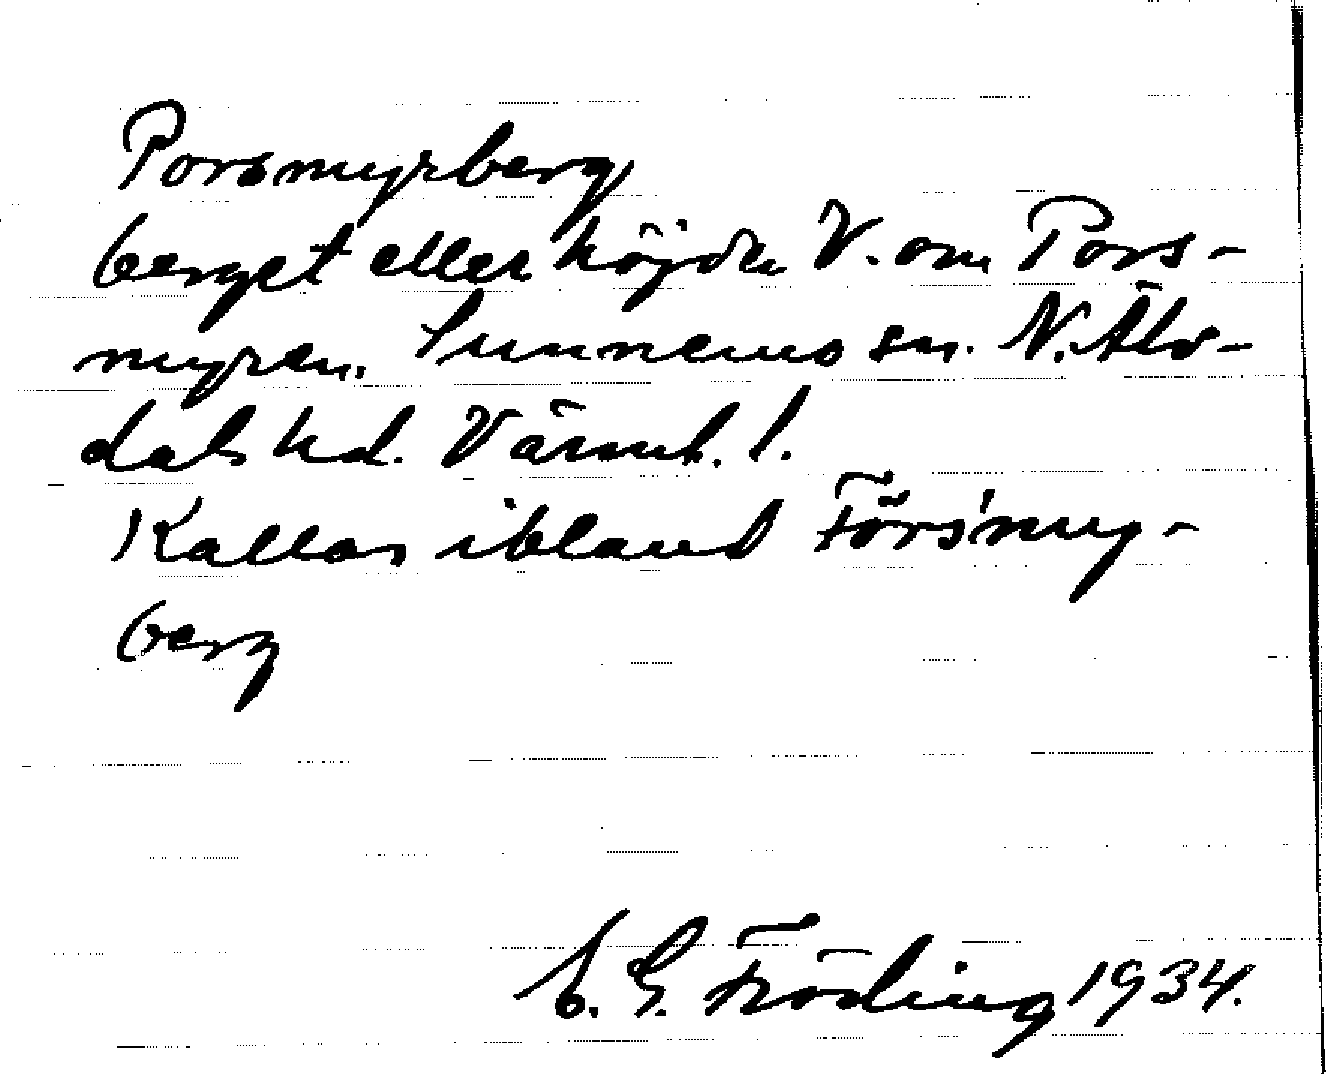 Porsmyrberg
berget eller höjden V. om Pors-
myren. Sunnemo sn. N. Älv-
dals hd. Värml. l.
Kallas ibland Förs'my-
berg
E. G. Fröding 1934.